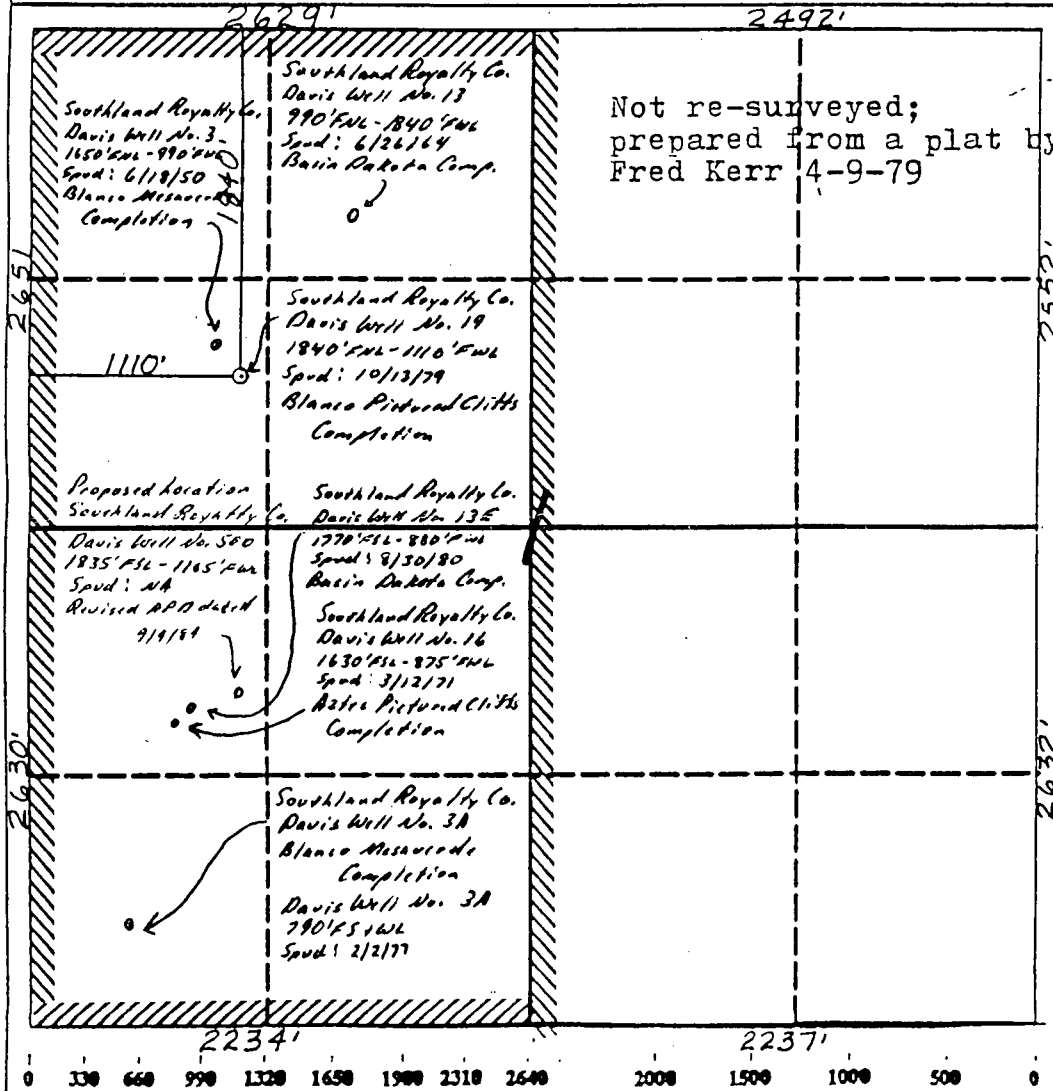 2629'
2492'
Southland Royalty Co.
Davis Well No. 3
1650'FNL-990'FWL
Spud: 6/18/50
Blanco Mesaverde
Completion
1840'
Southland Royalty Co.
Davis Well No. 13
990'FNL-1840'FWL
Spud: 6/26/64
Basin Dakota Comp.
Not re-surveyed;
prepared from a plat by
Fred Kerr 4-9-79
2651
2552'
1110'
Southland Royalty Co.
Davis Well No. 19
1840'FNL-1110'FWL
Spud: 10/13/79
Blanco Pictured Cliffs
Completion
Proposed Location
Southland Royalty Co.
Davis Well No. 500
1835'FSL-1165'FWL
Spud: NA
Revised APD dated
Southland Royalty Co.
Davis Well No. 13E
1770'FSL-880'FWL
Spud: 8/30/80
Basin Dakota Comp.
Southland Royalty Co.
Davis Well No. 16
1630'FSL-875'FWL
Spud: 3/12/71
Aztec Pictured Cliffs
Completion
2630'
2632'
Southland Royalty Co.
Davis Well No. 3A
Blanco Mesaverde
Completion
Davis Well No. 3A
790'FS+WL
Spud: 2/2/77
2234'
2237'
0 330 660 990 1320 1650 1900 2310 2640 2000 1500 1000 500 0